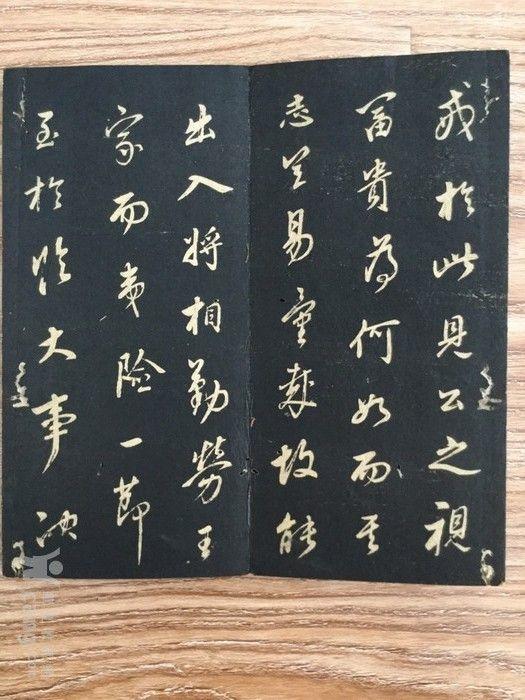 戒於此見公之視
富貴為何如而其
志豈易量哉故能
出入將相勤勞王
家而夷險一節
至於臨大事決